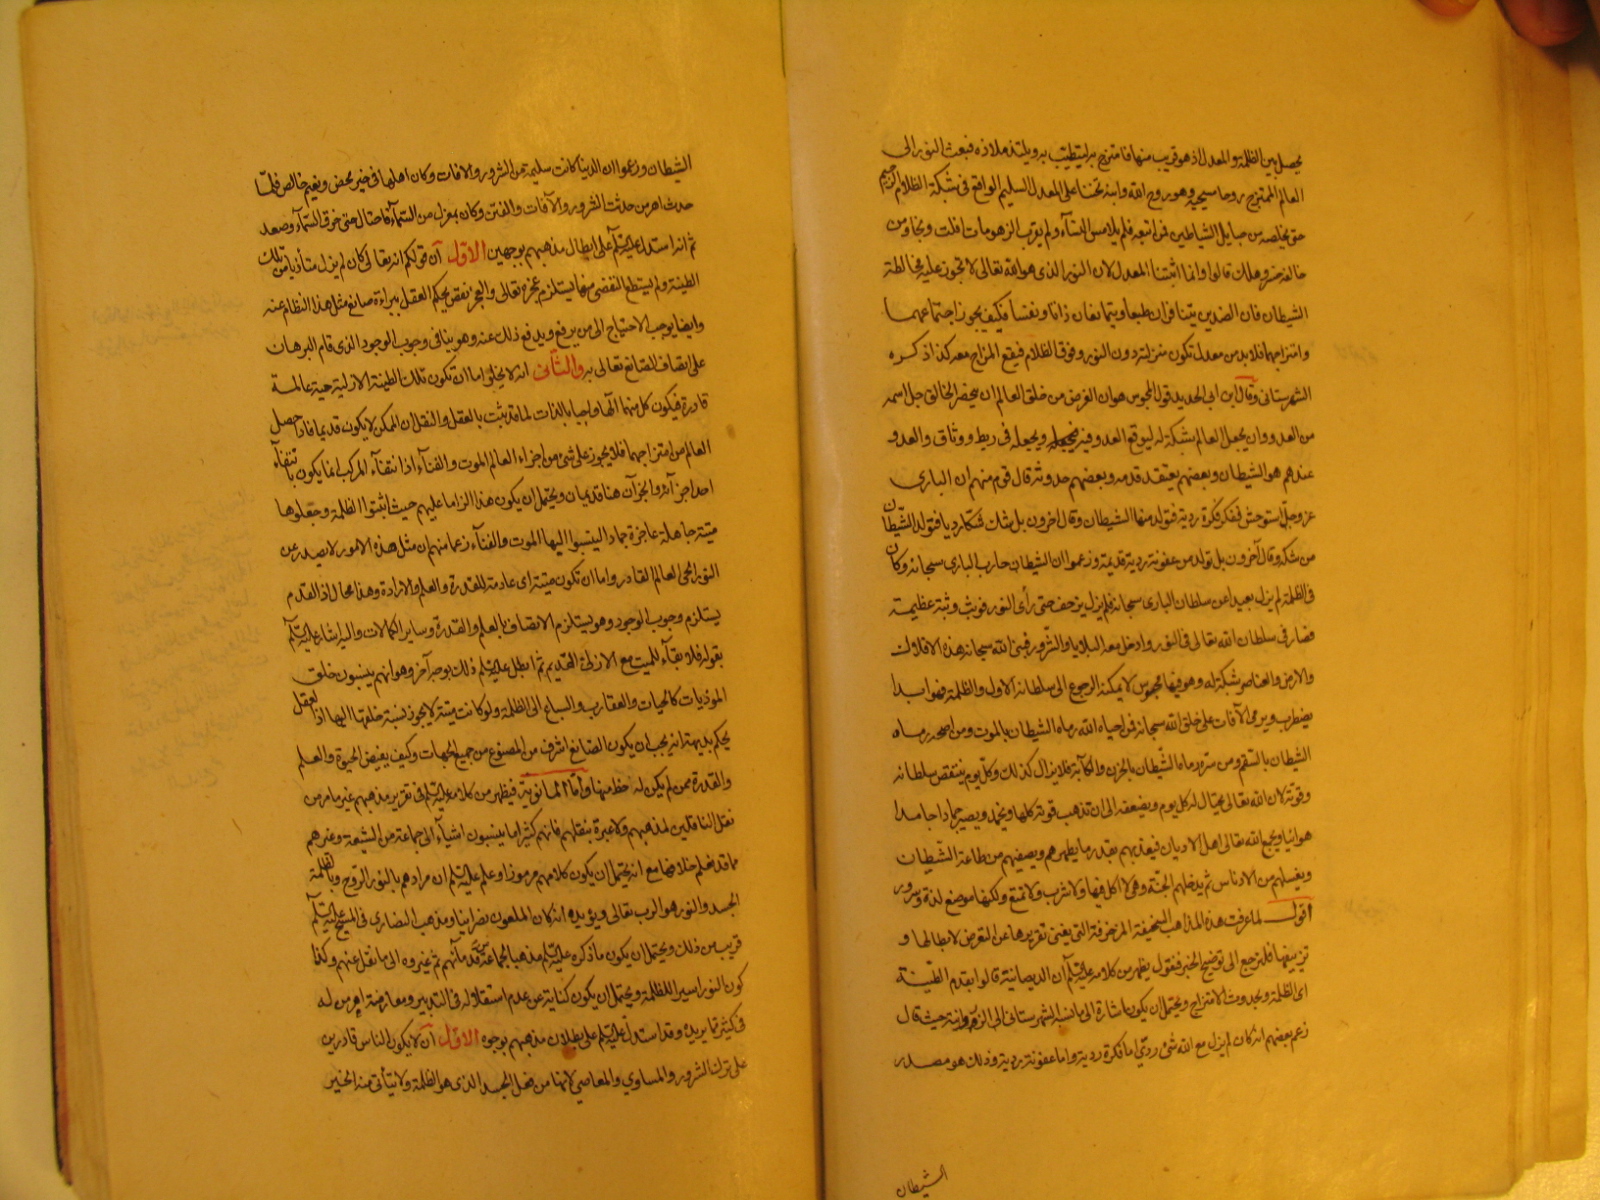 يحصل بين الظلمة والمعدل اذ هو قريب منها فامتزج به ليتطيّب به ويلتذ ملاذه فبعث النور الى
العالم الممتزج روحا مسيحية وهو روح الله وابنه تحننا على المعدل السليم الواقع في شبكة الظلام الرجيم
حتى يخلصه من حبايل الشياطين فمن اتبعه فلم يلامس النسآء ولم يقرب الزهومات افلت ونجا ومن
خالفه خسر وهلك قالوا وانما اثبتنا المعدل لان النور الذى هو الله تعالى لا تجوز عليه مخالطة
الشيطان فان الضدين يتنافران طبعا ويتمانعان ذاتا ونفسا فكيف يجوز اجتماعهما
وامتزاجهما فلا بد من معدل تكون منزلته دون النور وفوق الظلام فيقع المزاج معه كذا ذكره
الشهرستانى وقال ابن ابى الحديد قول المجوس هو ان الغرض من خلق العالم ان يتحصر الخالق جل اسمه
من العدو وان يجعل العالم شبكة له ليوقع العدو فيه فيجعله ويجعله في ربط ووثاق والعدو
عندهم هو الشيطان وبعضهم يعتقد قدمه وبعضهم حدوثه قال قوم منهم ان البارى
عز وجل استوحش ففكر فكرة ردية فتولد منها الشيطان وقال اخرون بل شك شكا رديا فتولد الشيطان
من شكه وقال آخرون بل تولد من عفونة ردية قديمة وزعموا ان الشيطان حارب البارى سبحانه وكان
فى الظلمة لم يزل بعيدا عن سلطان البارى سبحانه فلم يزل يزحف حتى رأى النور فوثب وثبة عظيمة
فصار فى سلطان الله تعالى فى النور وادخل معه البلايا والشرور فبنى الله سبحانه هذه الافلاك
والارض والعناصر شبكة له وهو فيها محبوس لا يمكنه الرجوع الى سلطانه الاول والظلمة فهو ابدا
يضطرب ويرمى الآفات على خلق الله سبحانه فمن احياه الله رماه الشيطان بالموت ومن اصحه رماه
الشيطان بالسقم ومن سره رماه الشيطان بالحزن والكآبة فلا يزال كذلك وكل يوم ينتقص سلطانه
وقوته لان الله تعالى يحتال له كل يوم ويضعفه الى ان تذهب قوته كلها ويخمد ويصير جمادا جامدا
هوائيا ويجمع الله تعالى اهل الاديان فيعذبهم بقدر ما يطهرهم ويصفيهم من طاعة الشيطان
ويغسلهم من الادناس ثم يدخلهم الجنة وهى لا اكل فيها ولا شرب ولا تمتع ولكنها موضع لذة وسرور
اقول لما عرفت هذه المذاهب السخيفة المزخرفة التى يغنى تقريرها عن التعرض لابطالها و
تزييفها فلنرجع الى توضيح الخبر فنقول يظهر من كلامه عليه السلام ان الديصانية قالوا بقدم الطينة
اى الظلمة وبحدوث الامتزاج ويحتمل ان يكون اشارة الى ما نسبه الشهرستانى الى الزروانية حيث قال
زعم بعضهم انه كان لم يزل مع الله شئ ردى اما فكرة ردية واما عفونة ردية وذلك هو مصدر
الشيطان
الشيطان وزعموا ان الدنيا كانت سليمة من الشرور والآفات وكان اهلها فى خير محض ونعيم خالص فلما
حدث اهرمن حدثت الشرور والآفات والفتن وكان بمعزل من السمآء فاحتال حتى خرق السمآء وصعد
ثم انه استدل عليه السلام على ابطال مذهبهم بوجهين الاوّل ان قولكم انه تعالى كان لم يزل متأذيا من تلك
الطينة ولم يستطع التفصى منها يستلزم عجزه تعالى والعجز نقص يحكم العقل ببراءة صانع مثل هذا النظام عنه
وايضا يوجب الاحتياج الى من يرفع ويدفع ذلك عنه وهو ينافى وجوب الوجود الذى قام البرهان
على اتصاف الصانع تعالى به والثانى انه لا يخلو اما ان تكون تلك الطينة الازلية حية عالمة
قادرة فيكون كل منهما الها واجبا بالذات لما قد يثبت بالعقل والنقل ان الممكن لا يكون قديما فاذا حصل
العالم من امتزاجهما فلا يجوز على شئ من اجزاء العالم الموت والفنآء اذ انتفآء المركب انما يكون بانتفآء
احد اجزآئه والجزآن هنا قديمان ويحتمل ان يكون هذا الزاما عليهم حيث اثبتوا الظلمة وجعلوها
ميتة جاهلة عاجزة جمادا لينسبوا اليها الموت والفنآء زعما منهم ان مثل هذه الامور لا يصدر عن
النور الحى العالم القادر واما ان تكون ميتة اى عادمة للقدرة والعلم والارادة وهذا محال اذ القدم
يستلزم وجوب الوجود وهو يستلزم الاتصاف بالعلم والقدرة وساير الكمالات واليه اشار عليه السلام
بقوله فلا بقآء للميت مع الازلى القديم ثم ابطل عليه السلام ذلك بوجه آخر وهو انهم ينسبون خلق
الموذيات كالحيات والعقارب والسباع الى الظلمة ولو كانت ميتة لا يجوز نسبة خلقها اليها اذ العقل
يحكم بديهة انه يجب ان يكون الصانع اشرف من المصنوع من جميع الجهات وكيف يفيض الحيوة والعلم
والقدرة ممن لم يكن له حظ منها واما المانوية فيظهر من كلامه عليه السلام فى تقرير مذهبهم غير ما مر من
نقل الناقلين لمذهبهم ولا عبرة بنقلهم فانهم كثيرا ما ينسبون اشيآء الى جماعة من الشيعة وغيرهم
مما قد نعلم خلافها مع انه يحتمل ان يكون كلامهم مرموزا وعلم عليه السلام ان مرادهم بالنور الروح وبالظلمة
الجسد والنور هو الرب تعالى ويؤيده انه كان الملعون نصرانيا ومذهب النصارى فى المسيح عليه السلام
قريب من ذلك ويحتمل ان يكون ما ذكره عليه السلام مذهبا لجماعة من قدمآئهم ثم غيروه الى ما نقل عنهم وكذا
كون النور اسيرا للظلمة ويحتمل ان يكون كناية عن عدم استقلاله فى التدبير ومعارضة اهرمن له
فى كثير مما يريده وقد استدل عليه السلام على بطلان مذهبهم بوجوه الاوّل ان لا يكون الناس قادرين
على ترك الشرور والمساوى والمعاصى لانها من فعل الجسد الذى هو الظلمة ولا يتأتى منه الخير